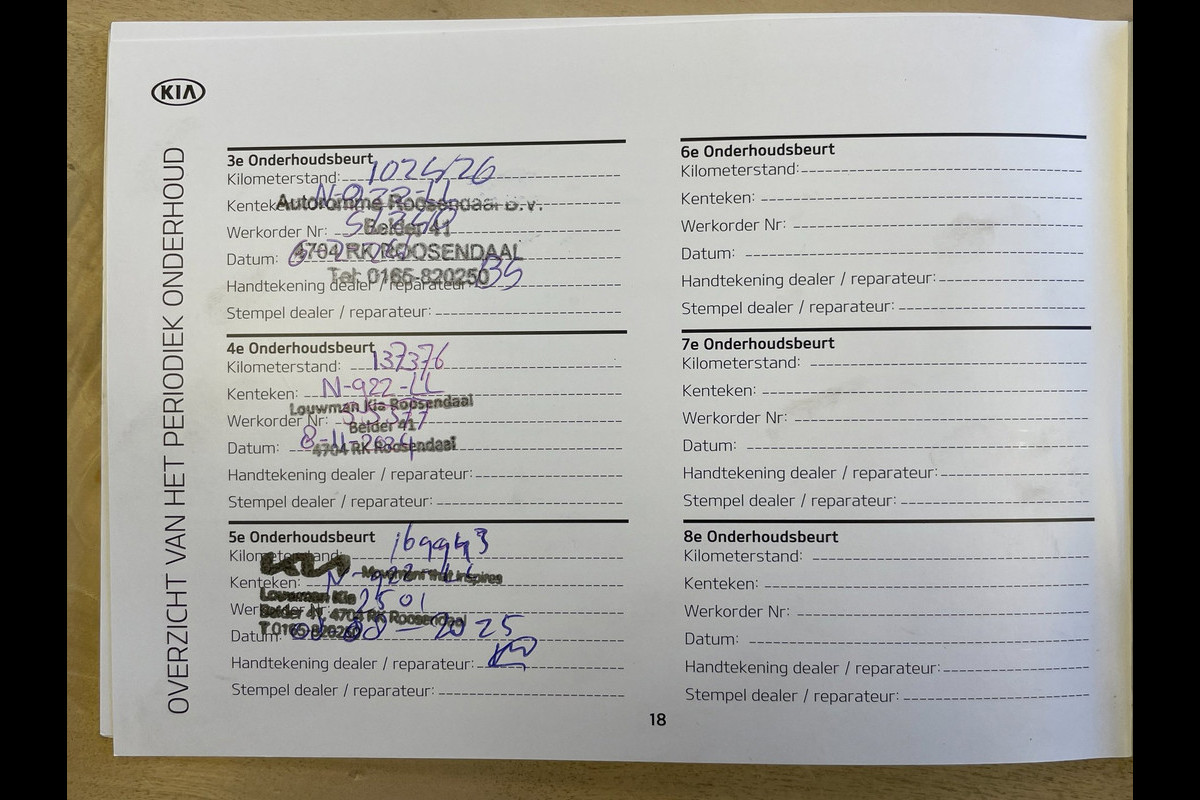 KIA
OVERZICHT VAN HET PERIODIEK ONDERHOUD
3e Onderhoudsbeurt
Kilometerstand: 102426
Kenteken: N-922-LL
Autoromme Roosendaal B.V.
Werkorder Nr:
Belder 41
Datum:
4704 RK ROOSENDAAL
Tel: 0165-820250
Handtekening dealer / reparateur:
Stempel dealer / reparateur:
4e Onderhoudsbeurt
Kilometerstand: 137376
Kenteken: N-922-LL
Louwman Kia Roosendaal
Werkorder Nr:
Belder 41
Datum: 8-11-2024
4704 RK Roosendaal
Handtekening dealer / reparateur:
Stempel dealer / reparateur:
5e Onderhoudsbeurt
Kilometerstand:
KIA Movement that inspires
Kenteken: N-922-LL
Louwman Kia
Werkorder Nr: 2501
Belder 41 4704 RK Roosendaal
T 0165-820250
Datum: 08-2025
Handtekening dealer / reparateur:
Stempel dealer / reparateur:
6e Onderhoudsbeurt
Kilometerstand:
Kenteken:
Werkorder Nr:
Datum:
Handtekening dealer / reparateur:
Stempel dealer / reparateur:
7e Onderhoudsbeurt
Kilometerstand:
Kenteken:
Werkorder Nr:
Datum:
Handtekening dealer / reparateur:
Stempel dealer / reparateur:
8e Onderhoudsbeurt
Kilometerstand:
Kenteken:
Werkorder Nr:
Datum:
Handtekening dealer / reparateur:
Stempel dealer / reparateur:
18